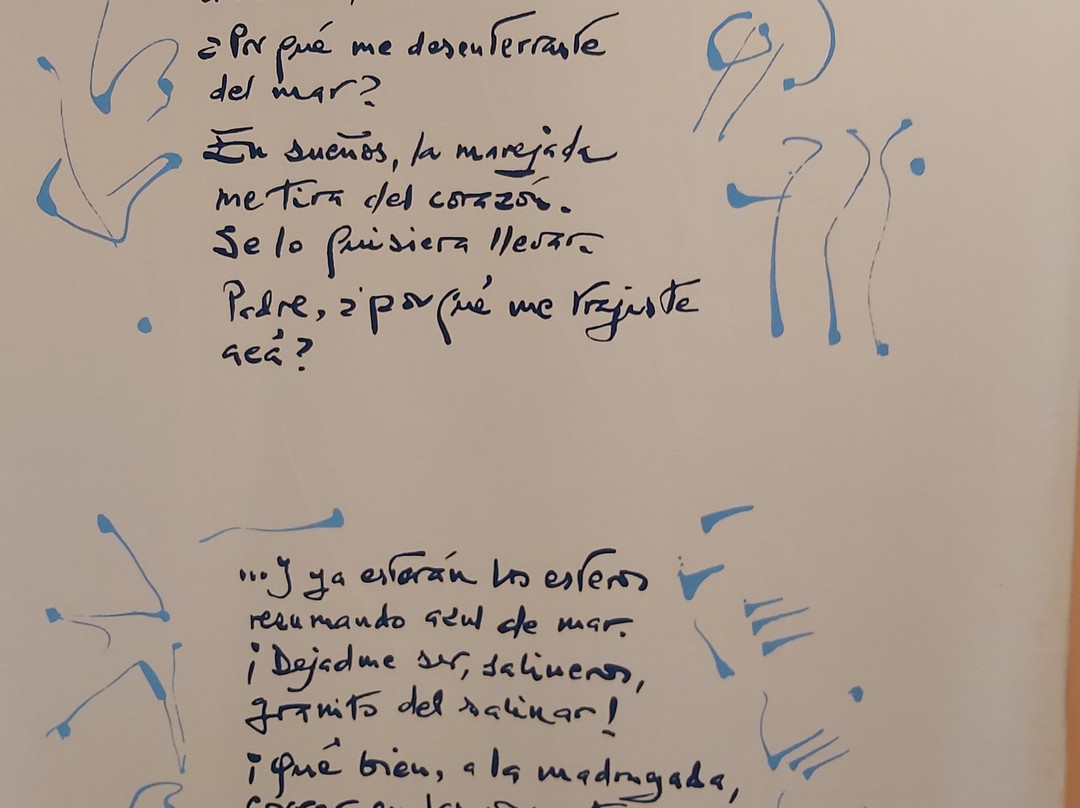 ¿Por qué me desenterraste
del mar?
En sueños, la marejada
me tira del corazón.
Se lo quisiera llevar.
Padre, ¿por qué me trajiste
acá?
...Y ya estarán los esteros
rezumando azul de mar.
¡Dejadme ser, salineros,
granito del salinar!
¡Qué bien, a la madrugada,